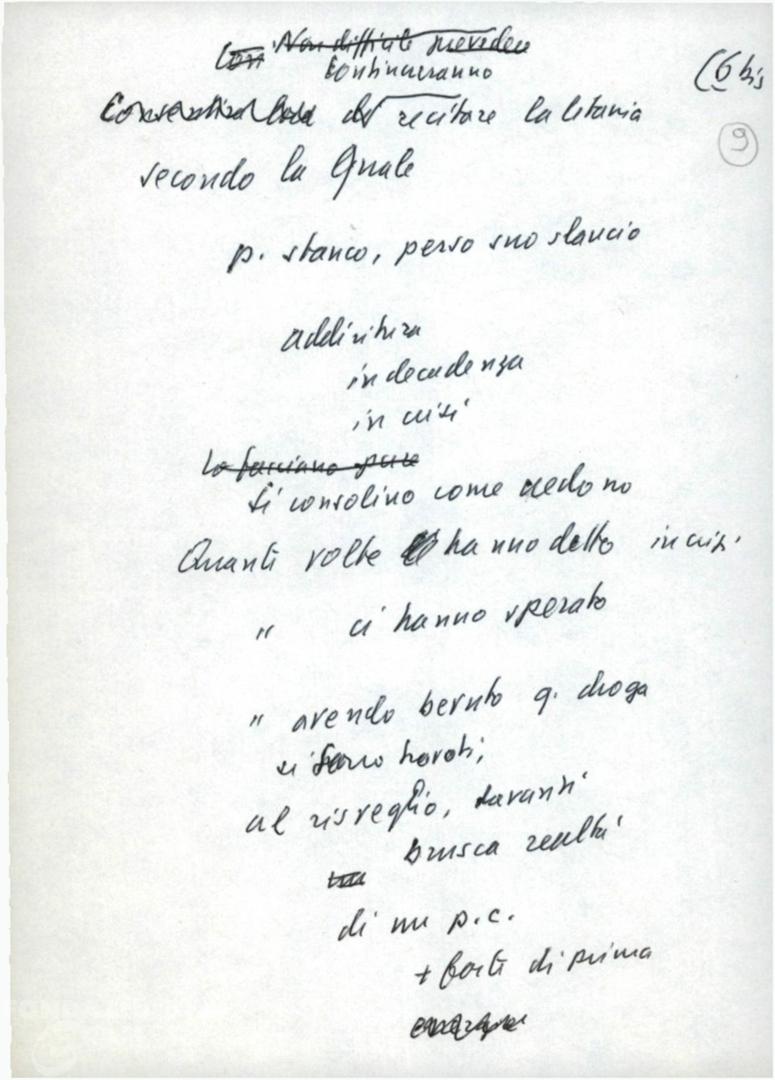 Con Non difficile prevedere
continueranno
(6 bis
9
a recitare la litania
secondo la quale
p. stanco, perso suo slancio
addirittura
in decadenza
in crisi
Lo facciano pure
Si consolino come credono
Quanti volte hanno detto in crisi.
" ci hanno sperato
" avendo bevuto q. droga
si sono trovati,
al risveglio, davanti
brusca realtà
di un p.c.
+ forte di prima